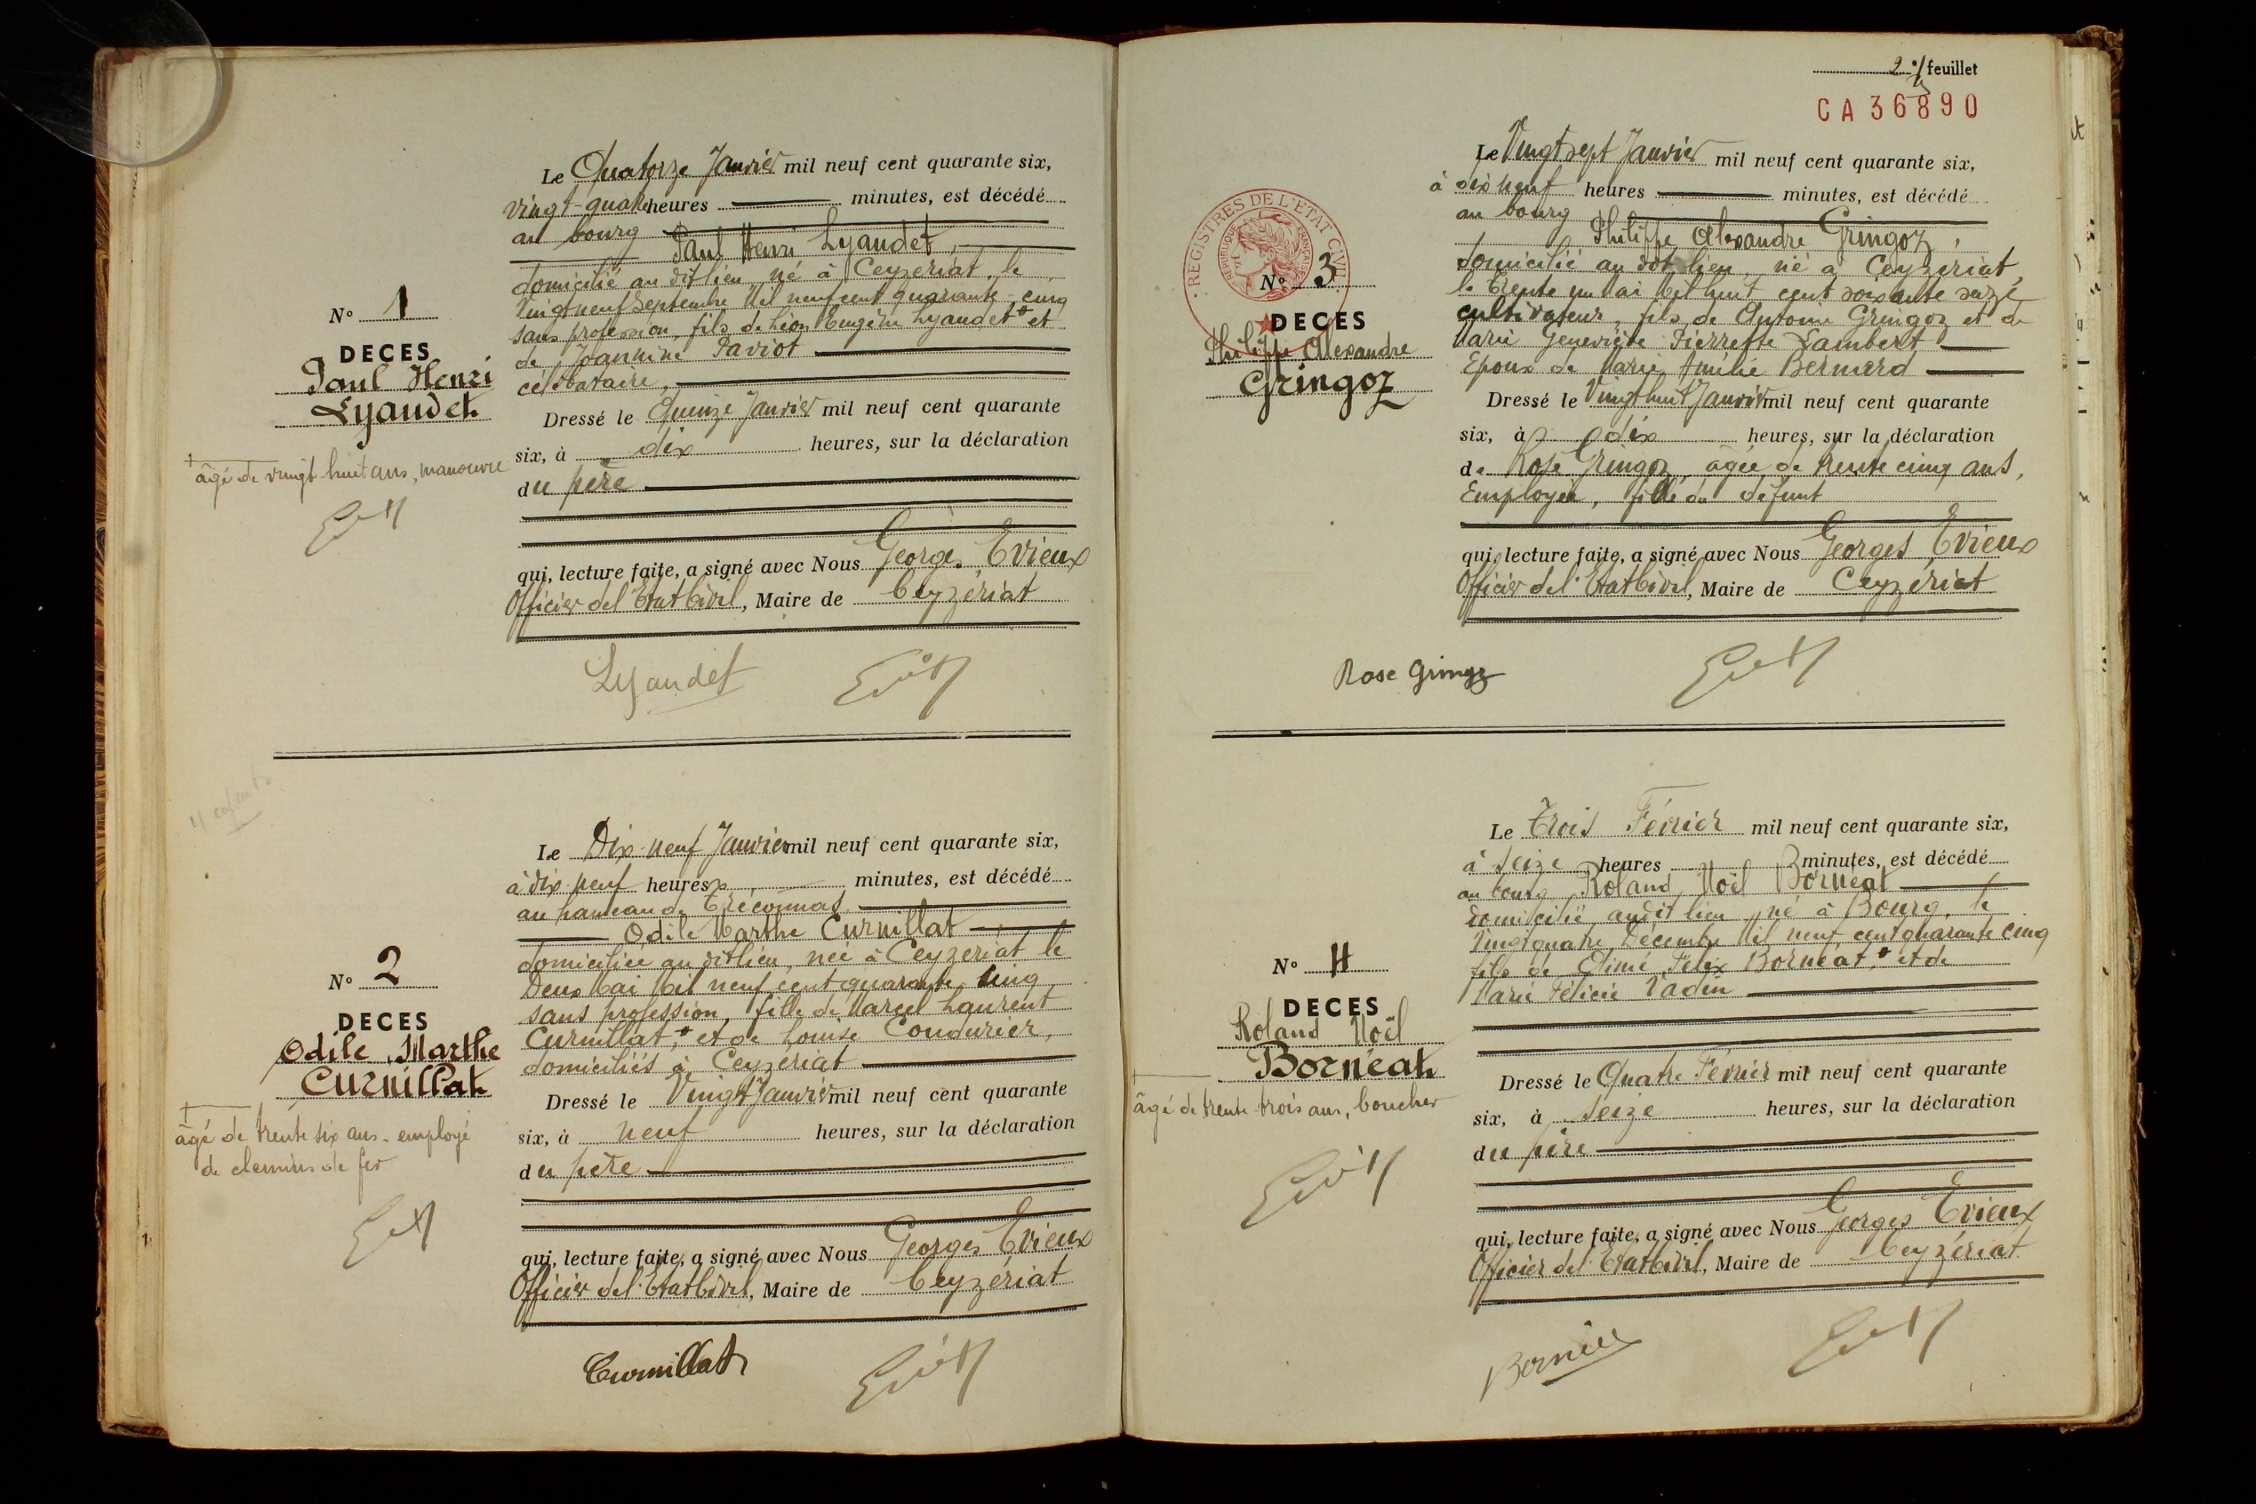 Nº 1
DECES
Paul Henri
Lyaudet
âgé de vingt huit ans, manœuvre
Le Quatorze Janvier mil neuf cent quarante six,
vingt-quatre heures minutes, est décédé
au bourg
Paul Henri Lyaudet,
domicilié au dit lieu, né à Ceyzériat, le
Vingt neuf Septembre Mil neuf cent quarante cinq
sans profession, fils de Léon Eugène Lyaudet et
de Joannine Paviot
célibataire,
Dressé le Quinze Janvier mil neuf cent quarante
six, à dix heures, sur la déclaration
du père
qui, lecture faite, a signé avec Nous Georges Evieux
Officier del'Etat Civil, Maire de Ceyzériat
Lyaudet
4 enfants
Nº 2
DECES
Odile Marthe
Curnillat
âgé de trente six ans - employé
de chemins de fer
Le Dix-neuf Janvier mil neuf cent quarante six,
à dix neuf heures minutes, est décédé
au hameau de Treconnas
Odile Marthe Curnillat
domiciliée au dit lieu, née à Ceyzeriat le
Deux Mai Mil neuf cent quarante cinq
sans profession, fille de Marcel Laurent
Curnillat, et de Louise Condurier,
domiciliés à Ceyzeriat
Dressé le Vingt Janvier mil neuf cent quarante
six, à neuf heures, sur la déclaration
du père
qui, lecture faite, a signé avec Nous Georges Evieux
Officier del'Etat Civil, Maire de Ceyzériat
Curnillat
2 feuillet
CA36890
REGISTRES DE L'ETAT CIVIL
REPUBLIQUE FRANÇAISE
Nº 3
DECES
Philippe Alexandre
Gringoz
Le Vingt sept Janvier mil neuf cent quarante six,
à dix neuf heures minutes, est décédé
au bourg
Philippe Alexandre Gringoz,
domicilié au dit lieu, né à Ceyzériat,
le trente un Mai Mil huit cent soixante seize
cultivateur, fils de Antoine Gringoz et de
Marie Geneviève Pierrette Lambert
Epoux de Marie Amélie Bernard
Dressé le Vingt huit Janvier mil neuf cent quarante
six, à dix heures, sur la déclaration
de Rose Gringoz, âgée de trente cinq ans,
Employée, fille du défunt
qui, lecture faite, a signé avec Nous Georges Evieux
Officier del'Etat Civil, Maire de Ceyzériat
Rose Gringoz
Nº 4
DECES
Roland Noël
Bornéat
âgé de trente trois ans, boucher
Le Trois Février mil neuf cent quarante six,
à seize heures minutes, est décédé
au bourg Roland Noël Bornéat
domicilié au dit lieu, né à Bourg, le
Vingt quatre Décembre Mil neuf cent quarante cinq
fils de Aimé Félix Bornéat, et de
Marie Félicie Vadin
Dressé le Quatre Février mil neuf cent quarante
six, à seize heures, sur la déclaration
du père
qui, lecture faite, a signé avec Nous Georges Evieux
Officier del'Etat Civil, Maire de Ceyzériat